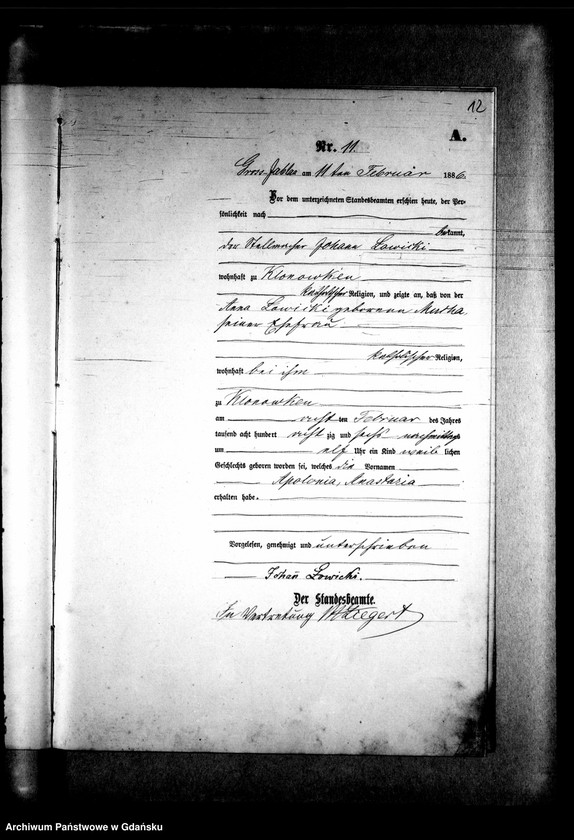 12
A.
Nr. 11.
Gross Jablau am 11 ten Februar 1886.
Vor dem unterzeichneten Standesbeamten erschien heute, der Per-
sönlichkeit nach
bekannt,
der Stellmacher Johann Lowicki
wohnhaft zu Klonowken
katholischer Religion, und zeigte an, daß von der
Anna Lowicki geborenen
seiner Ehefrau
katholischer Religion,
wohnhaft bei ihm
zu Klonowken
am acht ten Februar des Jahres
tausend acht hundert acht zig und sechs nachmittags
um elf Uhr ein Kind weib lichen
Geschlechts geboren worden sei, welches die Vornamen
Apolonia, Anastasia
erhalten habe.
Vorgelesen, genehmigt und unterschrieben
Johañ Lowicki.
Der Standesbeamte.
In Vertretung
Archiwum Państwowe w Gdańsku